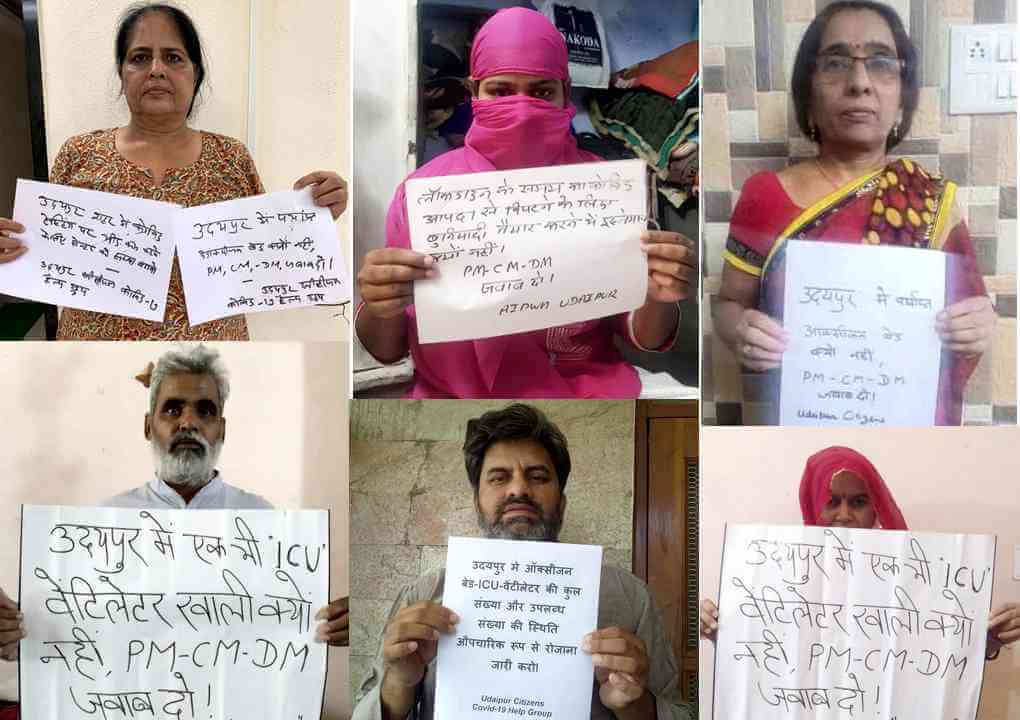 उदयपुर शहर में कोविड
टेस्टिंग
उदयपुर ऑक्सीजन कोविड-19
हेल्प ग्रुप
उदयपुर में पर्याप्त
ऑक्सीजन बेड क्यों नहीं,
PM, CM,-DM, जवाब दो।
- उदयपुर ऑक्सीजन
कोविड-19 हेल्प ग्रुप
NAKODA
लॉकडाउन के समय का कोविड
आपदा से निपटने के लिए
बुनियादी तैयार करने में इस्तेमाल
क्यों नहीं।
PM-CM-DM
जवाब दो!
AIPWA UDAIPUR
उदयपुर में पर्याप्त
आक्सीजन बेड
क्यों नहीं,
PM-CM-DM
जवाब दो!
Udaipur Citizens
उदयपुर में एक भी 'ICU'
वेंटिलेटर खाली क्यों
नहीं, PM-CM-DM
जवाब दो!
उदयपुर मे ऑक्सीजन
बेड-ICU-वेंटीलेटर की कुल
संख्या और उपलब्ध
संख्या की स्थिति
औपचारिक रूप से रोजाना
जारी करो!
Udaipur Citizens
Covid-19 Help Group
उदयपुर में एक भी 'ICU'
वेंटिलेटर खाली क्यों
नहीं, PM-CM-DM
जवाब दो!